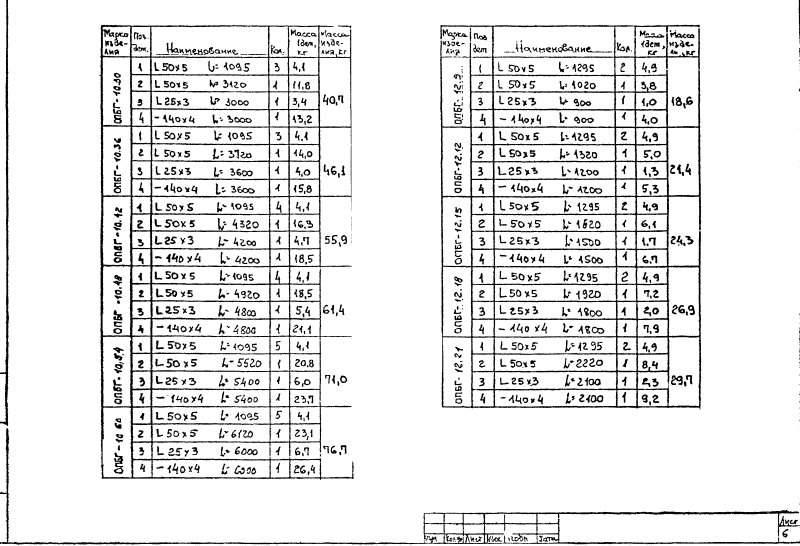 Марка изделия | Поз. дет. | Наименование | Кол. | Масса 1дет., кг | Масса изделия, кг
ОПБГ-10.30
1 L 50×5 L=1095 3 4,1
2 L 50×5 L=3120 1 11,8
3 L 25×3 L=3000 1 3,4
4 -140×4 L=3000 1 13,2
40,7
ОПБГ-10.36
1 L 50×5 L=1095 3 4,1
2 L 50×5 L=3720 1 14,0
3 L 25×3 L=3600 1 4,0
4 -140×4 L=3600 1 15,8
46,1
ОПБГ-10.42
1 L 50×5 L=1095 4 4,1
2 L 50×5 L=4320 1 16,3
3 L 25×3 L=4200 1 4,7
4 -140×4 L=4200 1 18,5
55,9
ОПБГ-10.48
1 L 50×5 L=1095 4 4,1
2 L 50×5 L=4920 1 18,5
3 L 25×3 L=4800 1 5,4
4 -140×4 L=4800 1 21,1
61,4
ОПБГ-10.54
1 L 50×5 L=1095 5 4,1
2 L 50×5 L=5520 1 20,8
3 L 25×3 L=5400 1 6,0
4 -140×4 L=5400 1 23,7
71,0
ОПБГ-10 60
1 L 50×5 L=1095 5 4,1
2 L 50×5 L=6120 1 23,1
3 L 25×3 L=6000 1 6,7
4 -140×4 L=6000 1 26,4
76,7
Марка изделия | Поз дет | Наименование | Кол. | Масса 1дет., кг | Масса издел., кг
ОПБГ-12.9
1 L 50×5 L=1295 2 4,9
2 L 50×5 L=1020 1 3,8
3 L 25×3 L=900 1 1,0
4 -140×4 L=900 1 4,0
18,6
ОПБГ-12.12
1 L 50×5 L=1295 2 4,9
2 L 50×5 L=1320 1 5,0
3 L 25×3 L=1200 1 1,3
4 -140×4 L=1200 1 5,3
21,4
ОПБГ-12.15
1 L 50×5 L=1295 2 4,9
2 L 50×5 L=1620 1 6,1
3 L 25×3 L=1500 1 1.7
4 -140×4 L=1500 1 6.7
24,3
ОПБГ-12.18
1 L 50×5 L=1295 2 4,9
2 L 50×5 L=1920 1 7,2
3 L 25×3 L=1800 1 2,0
4 -140×4 L=1800 1 7,9
26,9
ОПБГ-12.21
1 L 50×5 L=1295 2 4,9
2 L 50×5 L=2220 1 8,4
3 L 25×3 L=2100 1 2,3
4 -140×4 L=2100 1 9,2
29,7
Кол.уч Лист Подп Дата
Лист
6